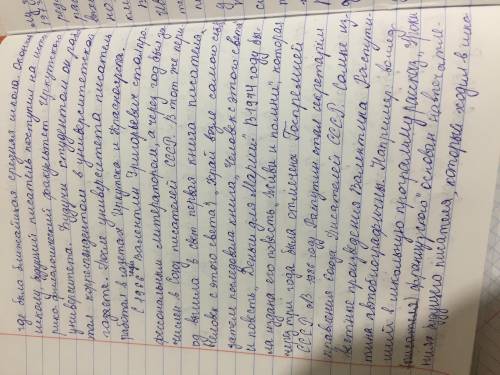 где была ближайшая средняя школа. Окончив
школу, будущий писатель поступил на исто-
рико-филологический факультет Иркутского
университета. Будучи студентом он рабо-
тал корреспондентом в университетской
газете. После университета писатель
работал в газетах Иркутска и Красноярска.
С 1966 года Валентин Григорьевич стал про-
фессиональным литератором, а через год был за-
числен в Союз писателей СССР. В этот же пери-
од вышла в свет первая книга писателя,
человек с этого света", „Край возле самого неба"
затем последовала книга „Человек с этого света"
и повесть „Деньги для Марии". В 1974 году бы-
ла издана его повесть „Живи и помни", которая
через три года была отмечена Госпремией
СССР. а в 1986 году Распутин стал секретарем
правления Союза Писателей СССР. Самые из-
вестные произведения Валентина Распути-
тина автобиографичны. Например, вошед-
ший в школьную программу рассказ „Уроки
французского" основан
ниях будущего писателя, который ходил в шко-